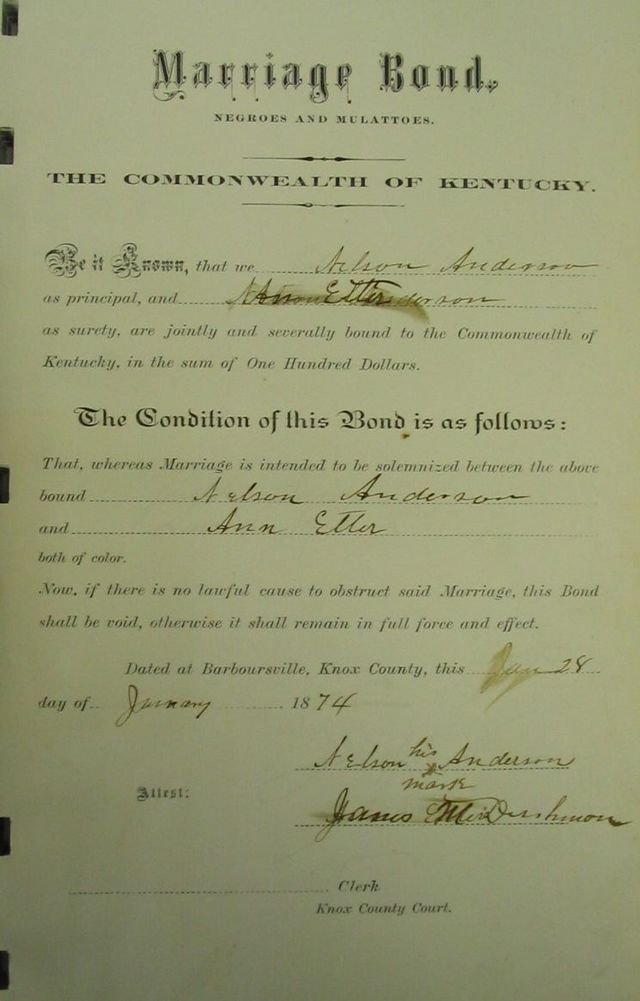 Marriage Bond.
NEGROES AND MULATTOES.
THE COMMONWEALTH OF KENTUCKY.
Be it Known, that we Nelson Anderson
as principal, and Etter
as surety, are jointly and severally bound to the Commonwealth of
Kentucky, in the sum of One Hundred Dollars.
The Condition of this Bond is as follows:
That, whereas Marriage is intended to be solemnized between the above
bound Nelson Anderson
and Ann Etter
both of color.
Now, if there is no lawful cause to obstruct said Marriage, this Bond
shall be void, otherwise it shall remain in full force and effect.
Dated at Barboursville, Knox County, this 28
day of January 1874
Nelson his Anderson
x
mark
Attest:
James
Clerk
Knox County Court.